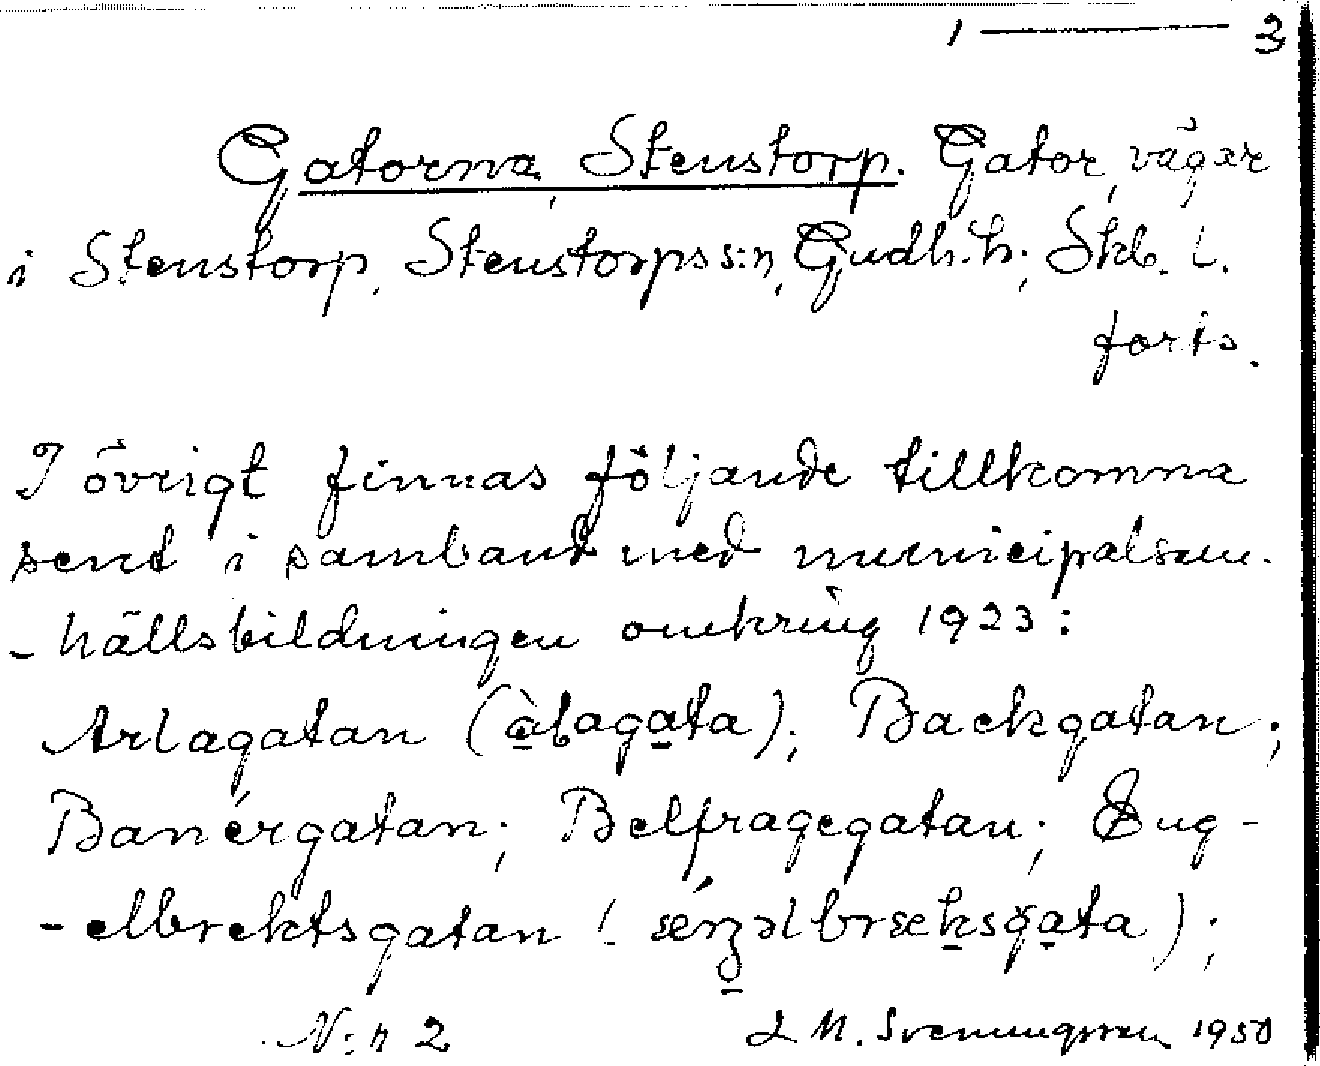 1 — 3
Gatorna, Stenstorp. Gator, vägar
i Stenstorp, Stenstorps s:n, Gudh. h., Skb. l.
forts.
I övrigt finnas följande tillkomna
sent i samband med municipalsam-
-hällsbildningen omkring 1923:
Arlagatan (); Backgatan;
Banérgatan; Belfragegatan; Eng-
-elbrektsgatan ();
N:r 2
L M. Svenungsson 1950